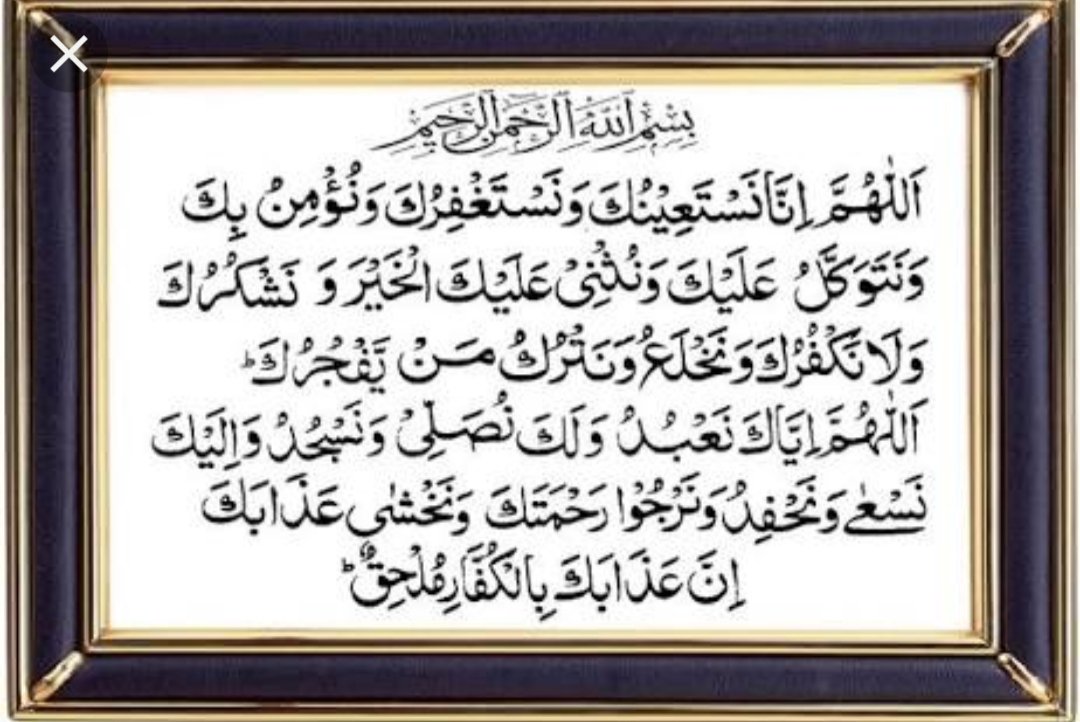 بِسْمِ اللّٰهِ الرَّحْمٰنِ الرَّحِيْمِ
اَللّٰهُمَّ اِنَّا نَسْتَعِيْنُكَ وَنَسْتَغْفِرُكَ وَنُؤْمِنُ بِكَ
وَنَتَوَكَّلُ عَلَيْكَ وَنُثْنِىْ عَلَيْكَ الْخَيْرَ وَ نَشْكُرُكَ
وَلَا نَكْفُرُكَ وَنَخْلَعُ وَنَتْرُكُ مَنْ يَّفْجُرُكَؕ
اَللّٰهُمَّ اِيَّاكَ نَعْبُدُ وَلَكَ نُصَلِّىْ وَنَسْجُدُ وَاِلَيْكَ
نَسْعٰى وَنَحْفِدُ وَنَرْجُوْا رَحْمَتَكَ وَنَخْشٰى عَذَابَكَ
اِنَّ عَذَابَكَ بِالْكُفَّارِ مُلْحِقٌؕ